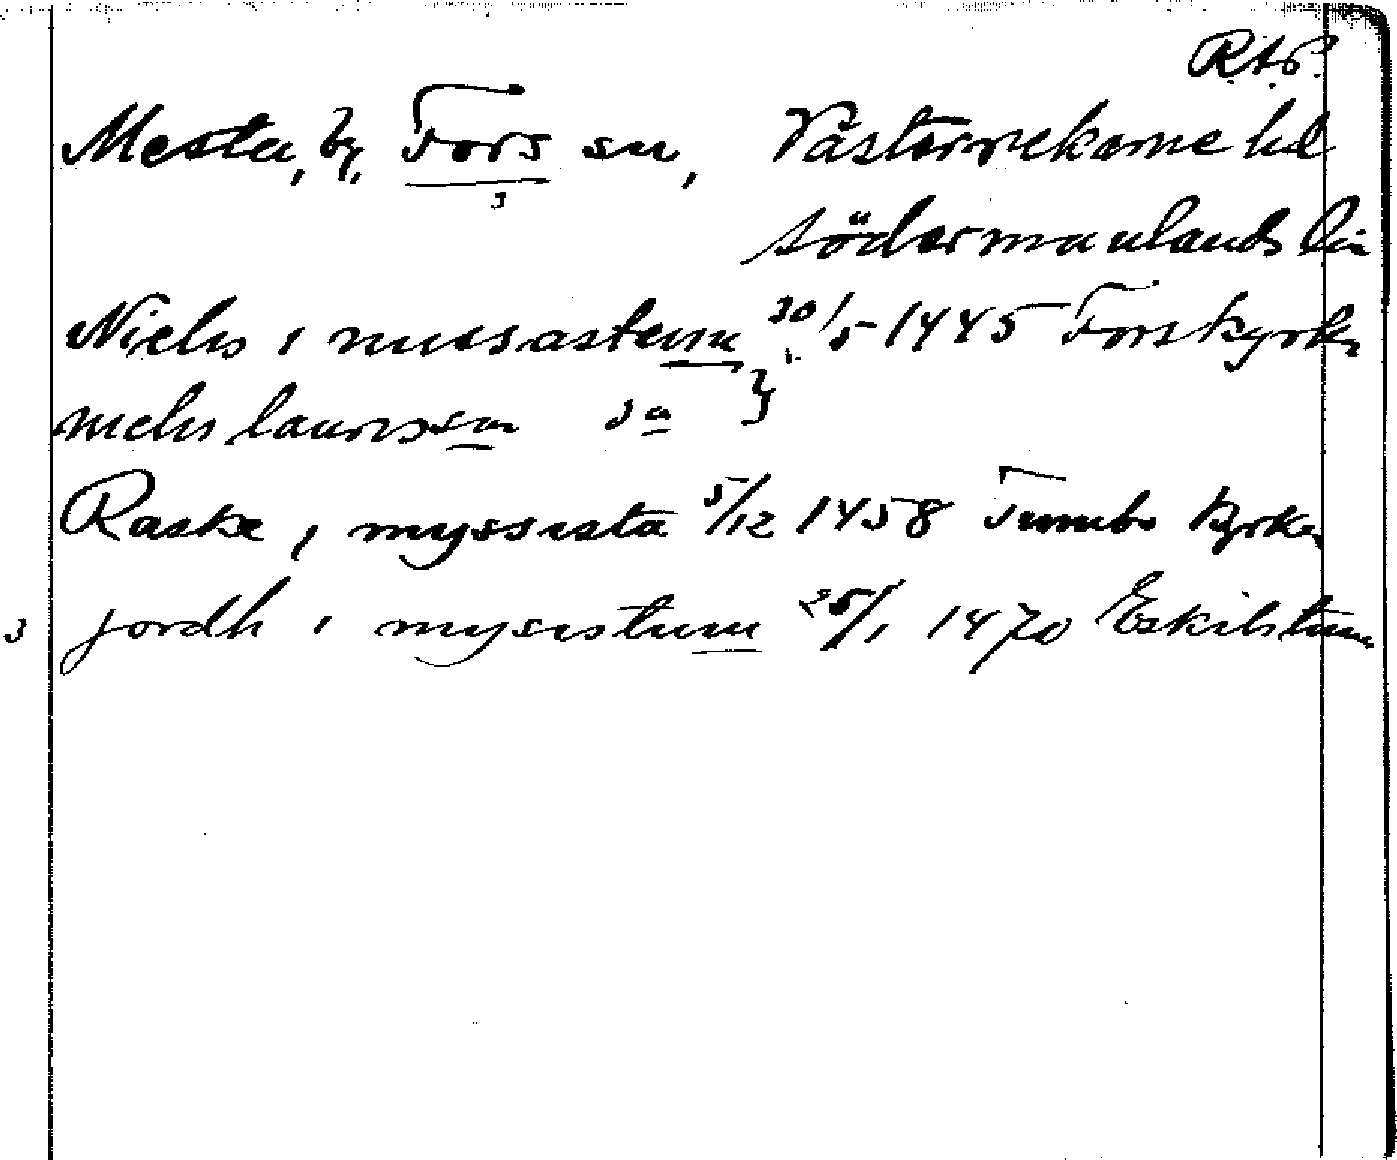 R.A.P.
Mesta, by, Fors sn, Västerrekarne hd
Södermanlands län
Niels i missastum 30/5 1445 Fors kyrka
niels laurisson sa }
Raske, i myssista 5/12 1458 Tumbo kyrka
jordh i mysistum 25/1 1470 Eskilstuna